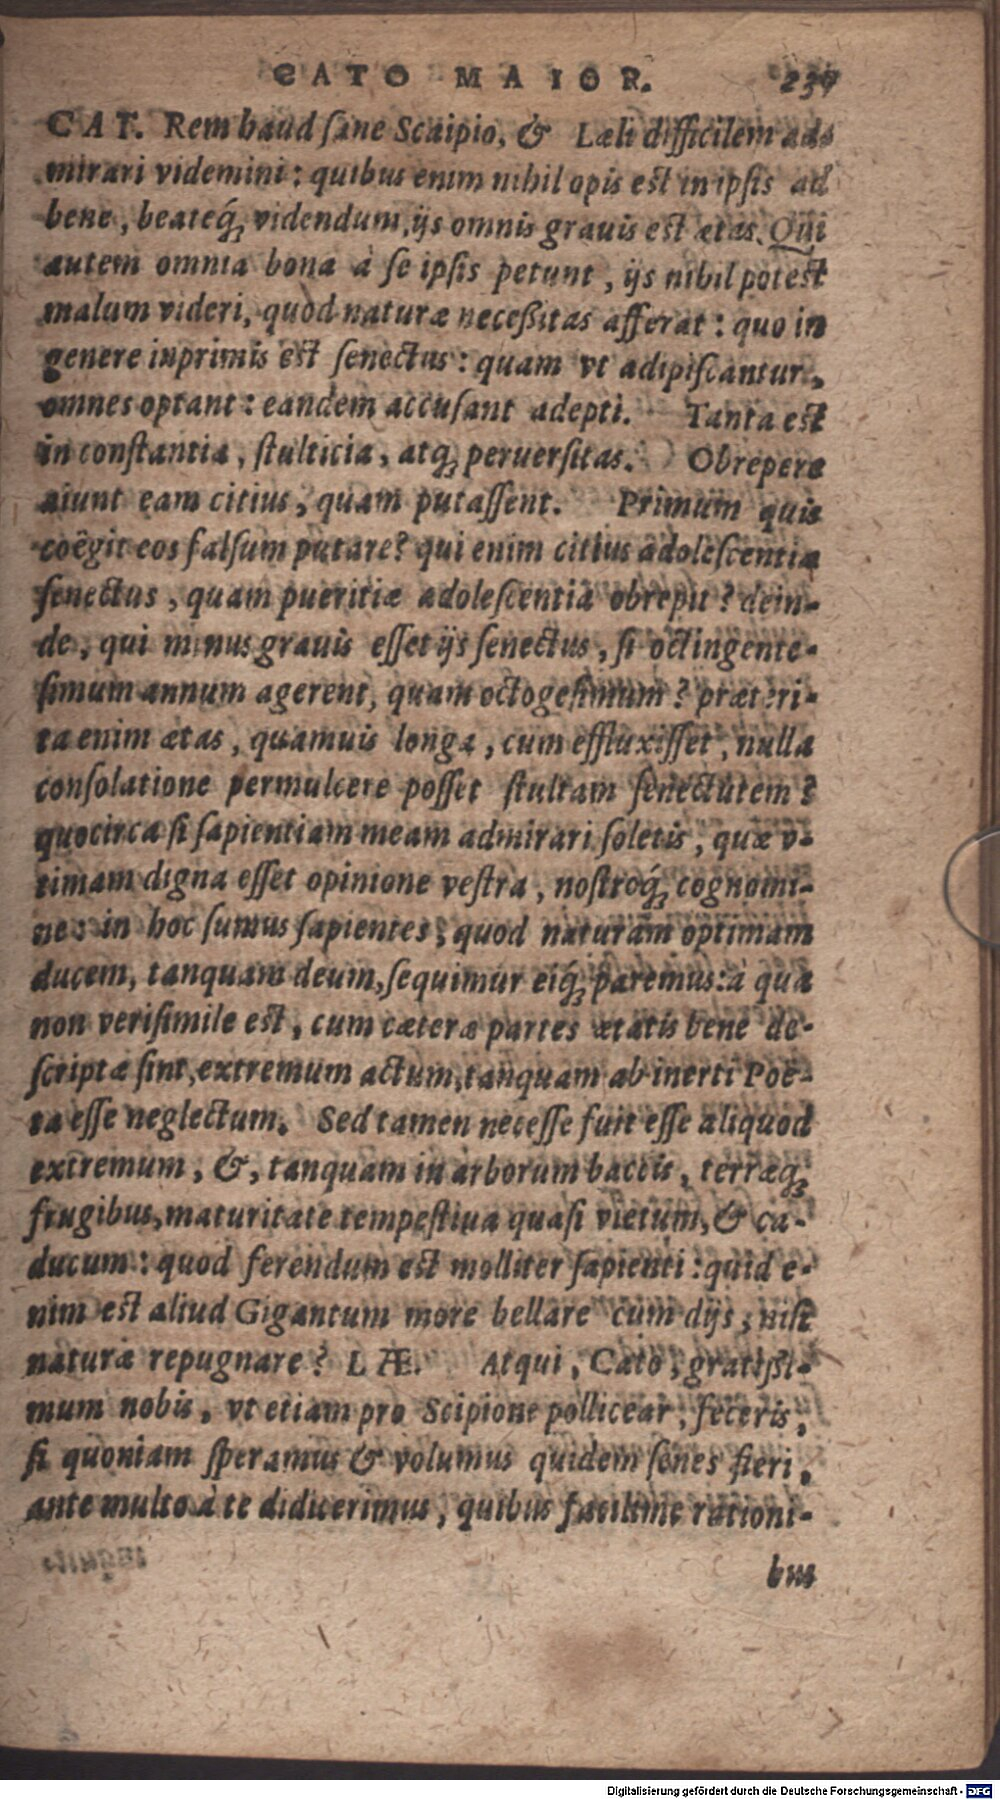 CATO MAIOR. 237
CAT. Rem haud ſane Scaipio, & Læli difficilem ad-
mirari videmini: quibus enim nihil opis est in ipſis ad
bene, beateq́; videndum, ijs omnis grauis est ætas. Qui
autem omnia bona à ſe ipſis petunt, ijs nihil potest
malum videri, quod naturæ neceßitas afferat: quo in
genere inprimis est ſenectus: quam vt adipiſcantur,
omnes optant: eandem accuſant adepti. Tanta est
in conſtantia, ſtulticia, atq; peruerſitas. Obrepere
aiunt eam citius, quam putaſſent. Primum quis
coëgit eos falſum putare? qui enim citius adoleſcentiæ
ſenectus, quam pueritiæ adoleſcentia obrepit? dein-
de, qui minus grauis eſſet ijs ſenectus, ſi octingente-
ſimum annum agerent, quam octogeſimum? præteri-
ta enim ætas, quamuis longa, cum effluxiſſet, nulla
conſolatione permulcere poſſet ſtultam ſenectutem?
quocirca ſi ſapientiam meam admirari ſoletis, quæ v-
timam digna eſſet opinione veſtra, noſtroq́; cognomi-
ne: in hoc ſumus ſapientes, quod naturam optimam
ducem, tanquam deum, ſequimur eiq́; paremus: à qua
non veriſimile est, cum cæteræ partes ætatis bene de-
ſcriptæ ſint, extremum actum, tanquam ab inerti Poë-
ta eſſe neglectum. Sed tamen neceſſe fuit eſſe aliquod
extremum, &, tanquam in arborum baccis, terræq;
frugibus, maturitate tempeſtiua quaſi vietum, & ca-
ducum: quod ferendum est molliter ſapienti: quid e-
nim est aliud Gigantum more bellare cum dijs, niſi
naturæ repugnare? LÆ. Atqui, Cato, gratißi-
mum nobis, vt etiam pro Scipione pollicear, feceris,
ſi quoniam ſperamus & volumus quidem ſenes fieri,
ante multo à te didicerimus, quibus facillime rationi-
bus
Digitalisierung gefördert durch die Deutsche Forschungsgemeinschaft - DFG